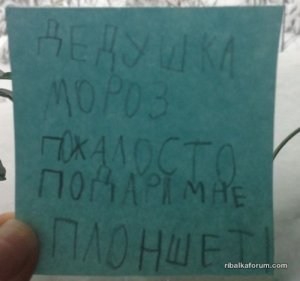 ДЕДУШКА
МОРОЗ
ПОЖАЛОСТО
ПОДАРИ МНЕ
ПЛОНШЕТ!
ribalkaforum.com